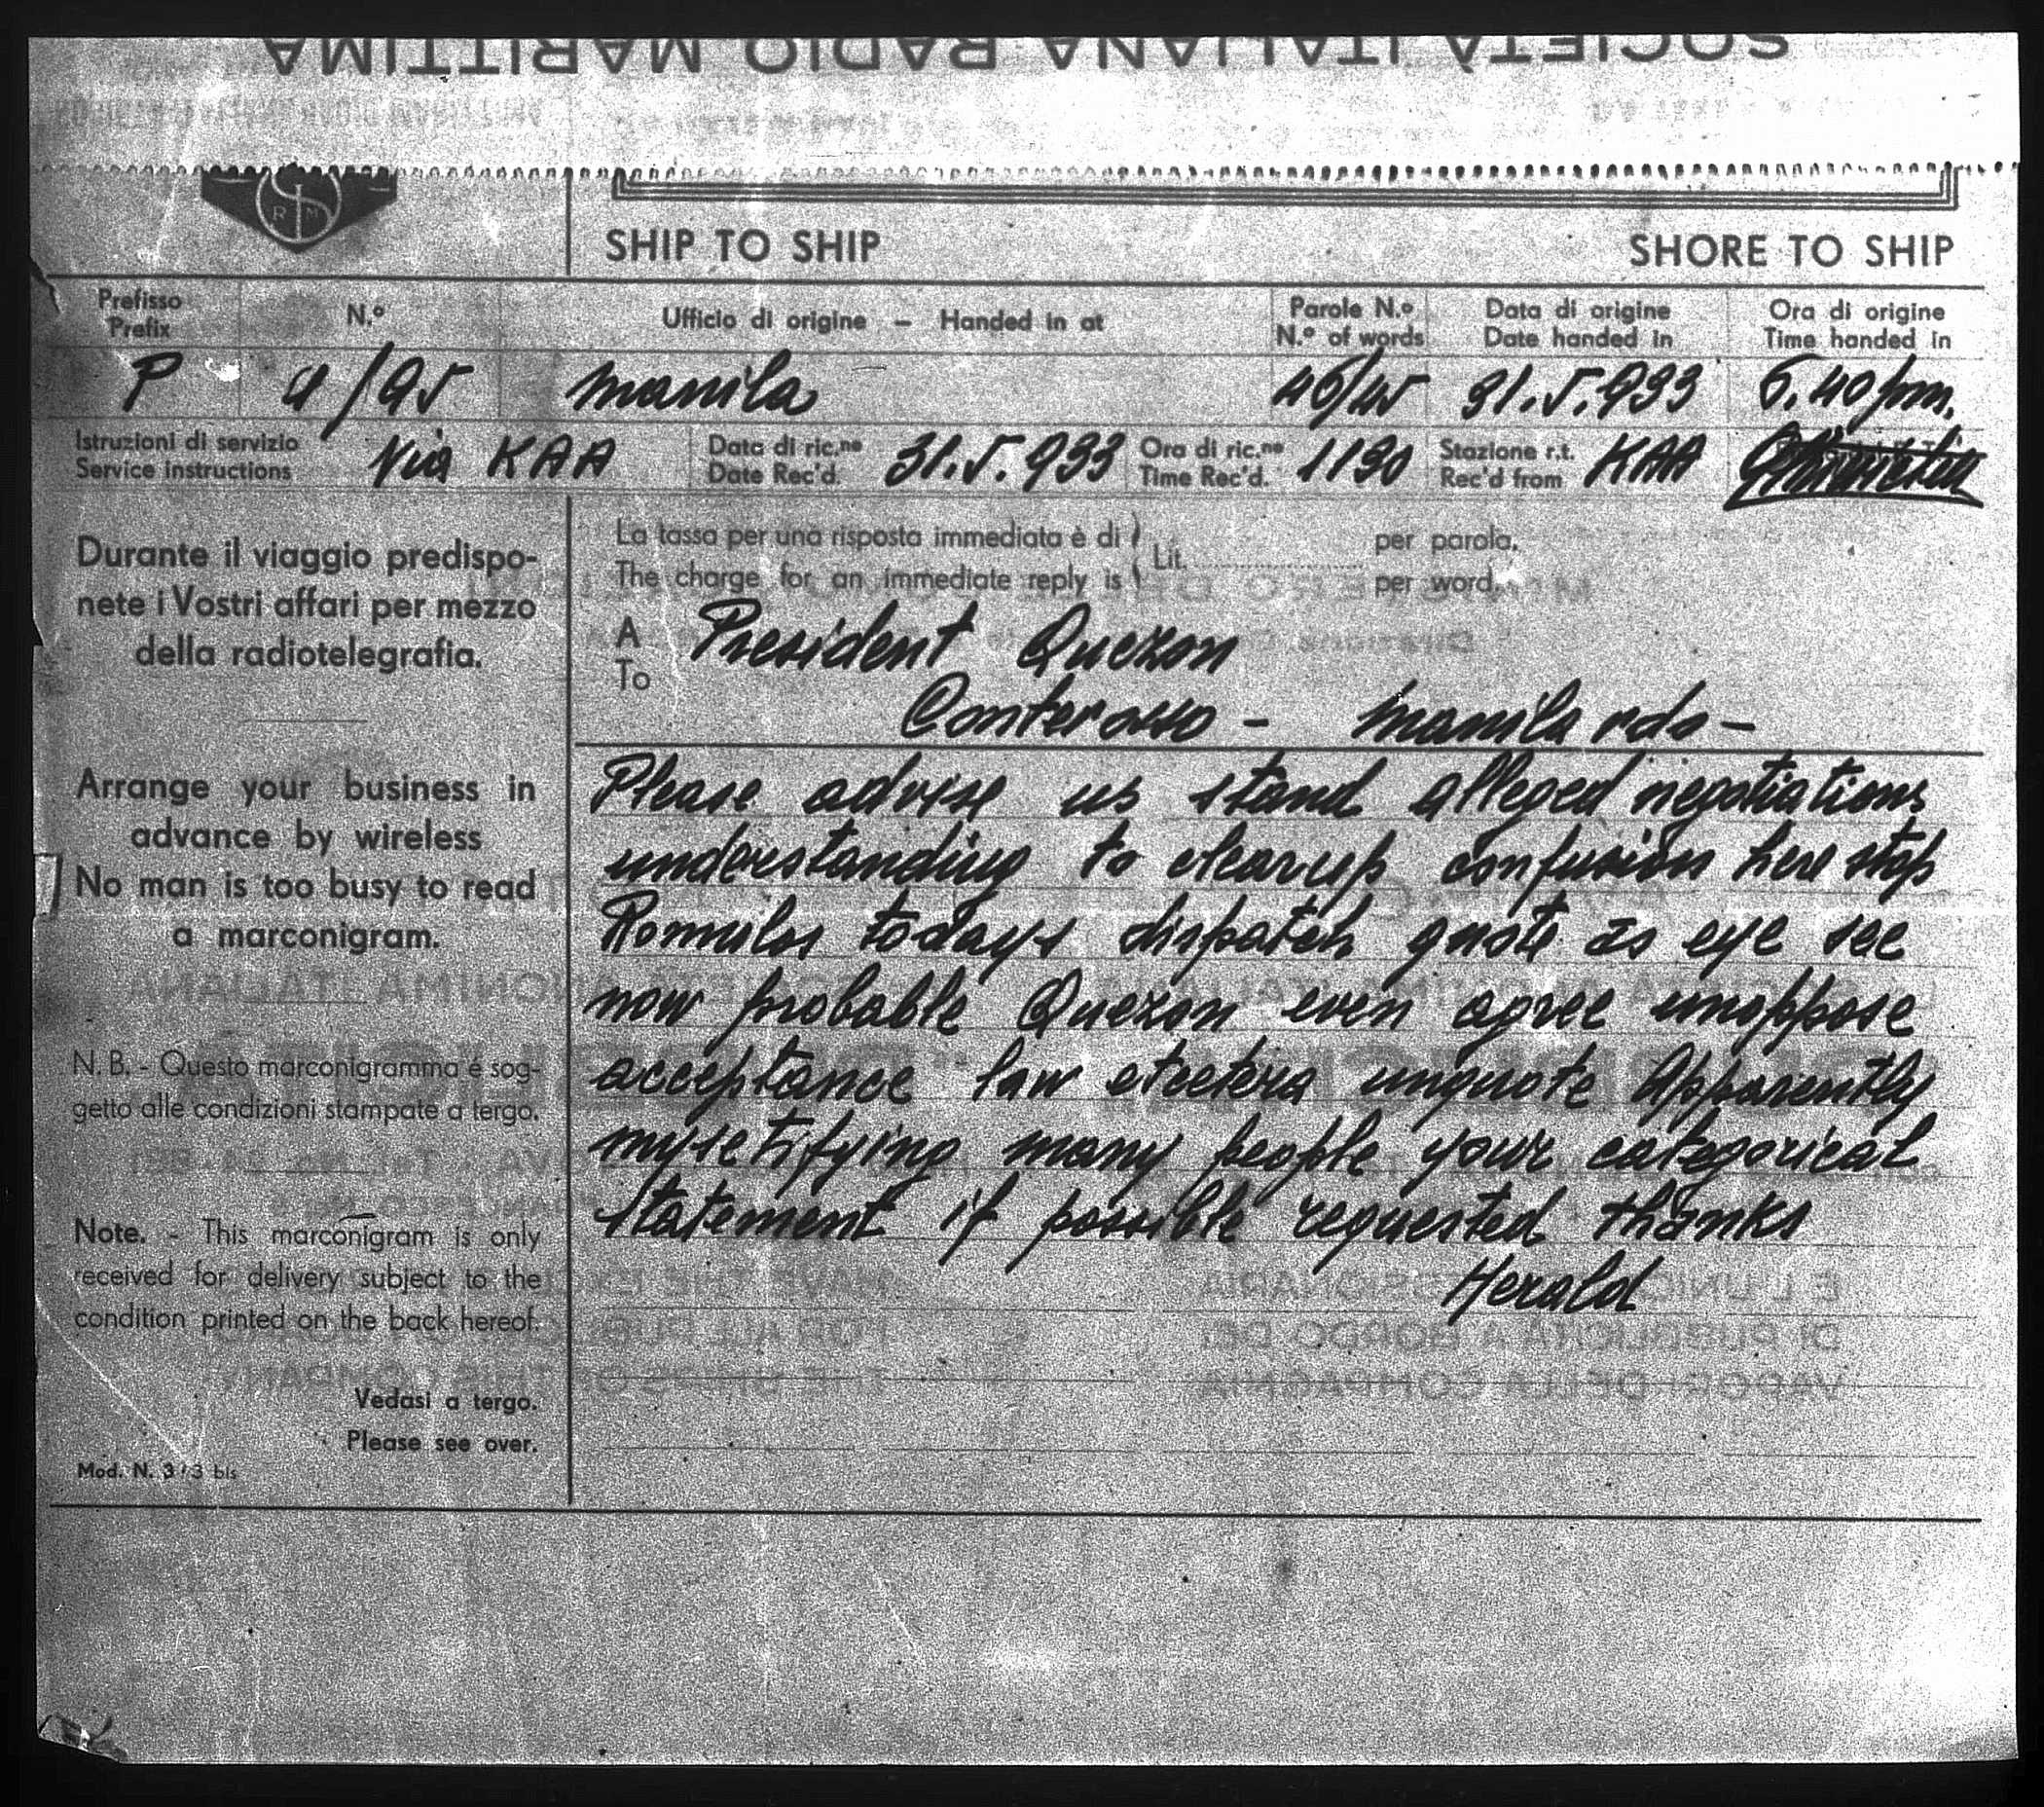 SOCIETÀ ITALIANA RADIO MARITTIMA
R M
SHIP TO SHIP
SHORE TO SHIP
Prefisso
Prefix
N.º
Ufficio di origine — Handed in at
Parole N.º
N.º of words
Data di origine
Date handed in
Ora di origine
Time handed in
P
4/95
Manila
46/45
31.5.933
6.40pm.
Istruzioni di servizio
Service instructions
Via KAA
Data di ric.ne
Date Rec'd.
31.5.933
Ora di ric.ne
Time Rec'd.
1130
Stazione r.t.
Rec'd from
KAA
Durante il viaggio predispo-
nete i Vostri affari per mezzo
della radiotelegrafia.
Arrange your business in
advance by wireless
No man is too busy to read
a marconigram.
N. B. - Questo marconigramma é sog-
getto alle condizioni stampate a tergo.
Note. - This marconigram is only
received for delivery subject to the
condition printed on the back hereof.
Vedasi a tergo.
Please see over.
Mod. N. 3/3 bis
La tassa per una risposta immediata è di
The charge for an immediate reply is
Lit.
per parola.
per word.
A
To
President Quezon
Conterosso - Manila rdo -
Please advise us stand alleged negotiations
understanding to clearup confusion here stop
Romulos todays dispatch quote as eye see
now probable Quezon even agree unoppose
acceptance law etcetera unquote Apparently
mysetifying many people your categorical
statement if possible requested thanks
Herald